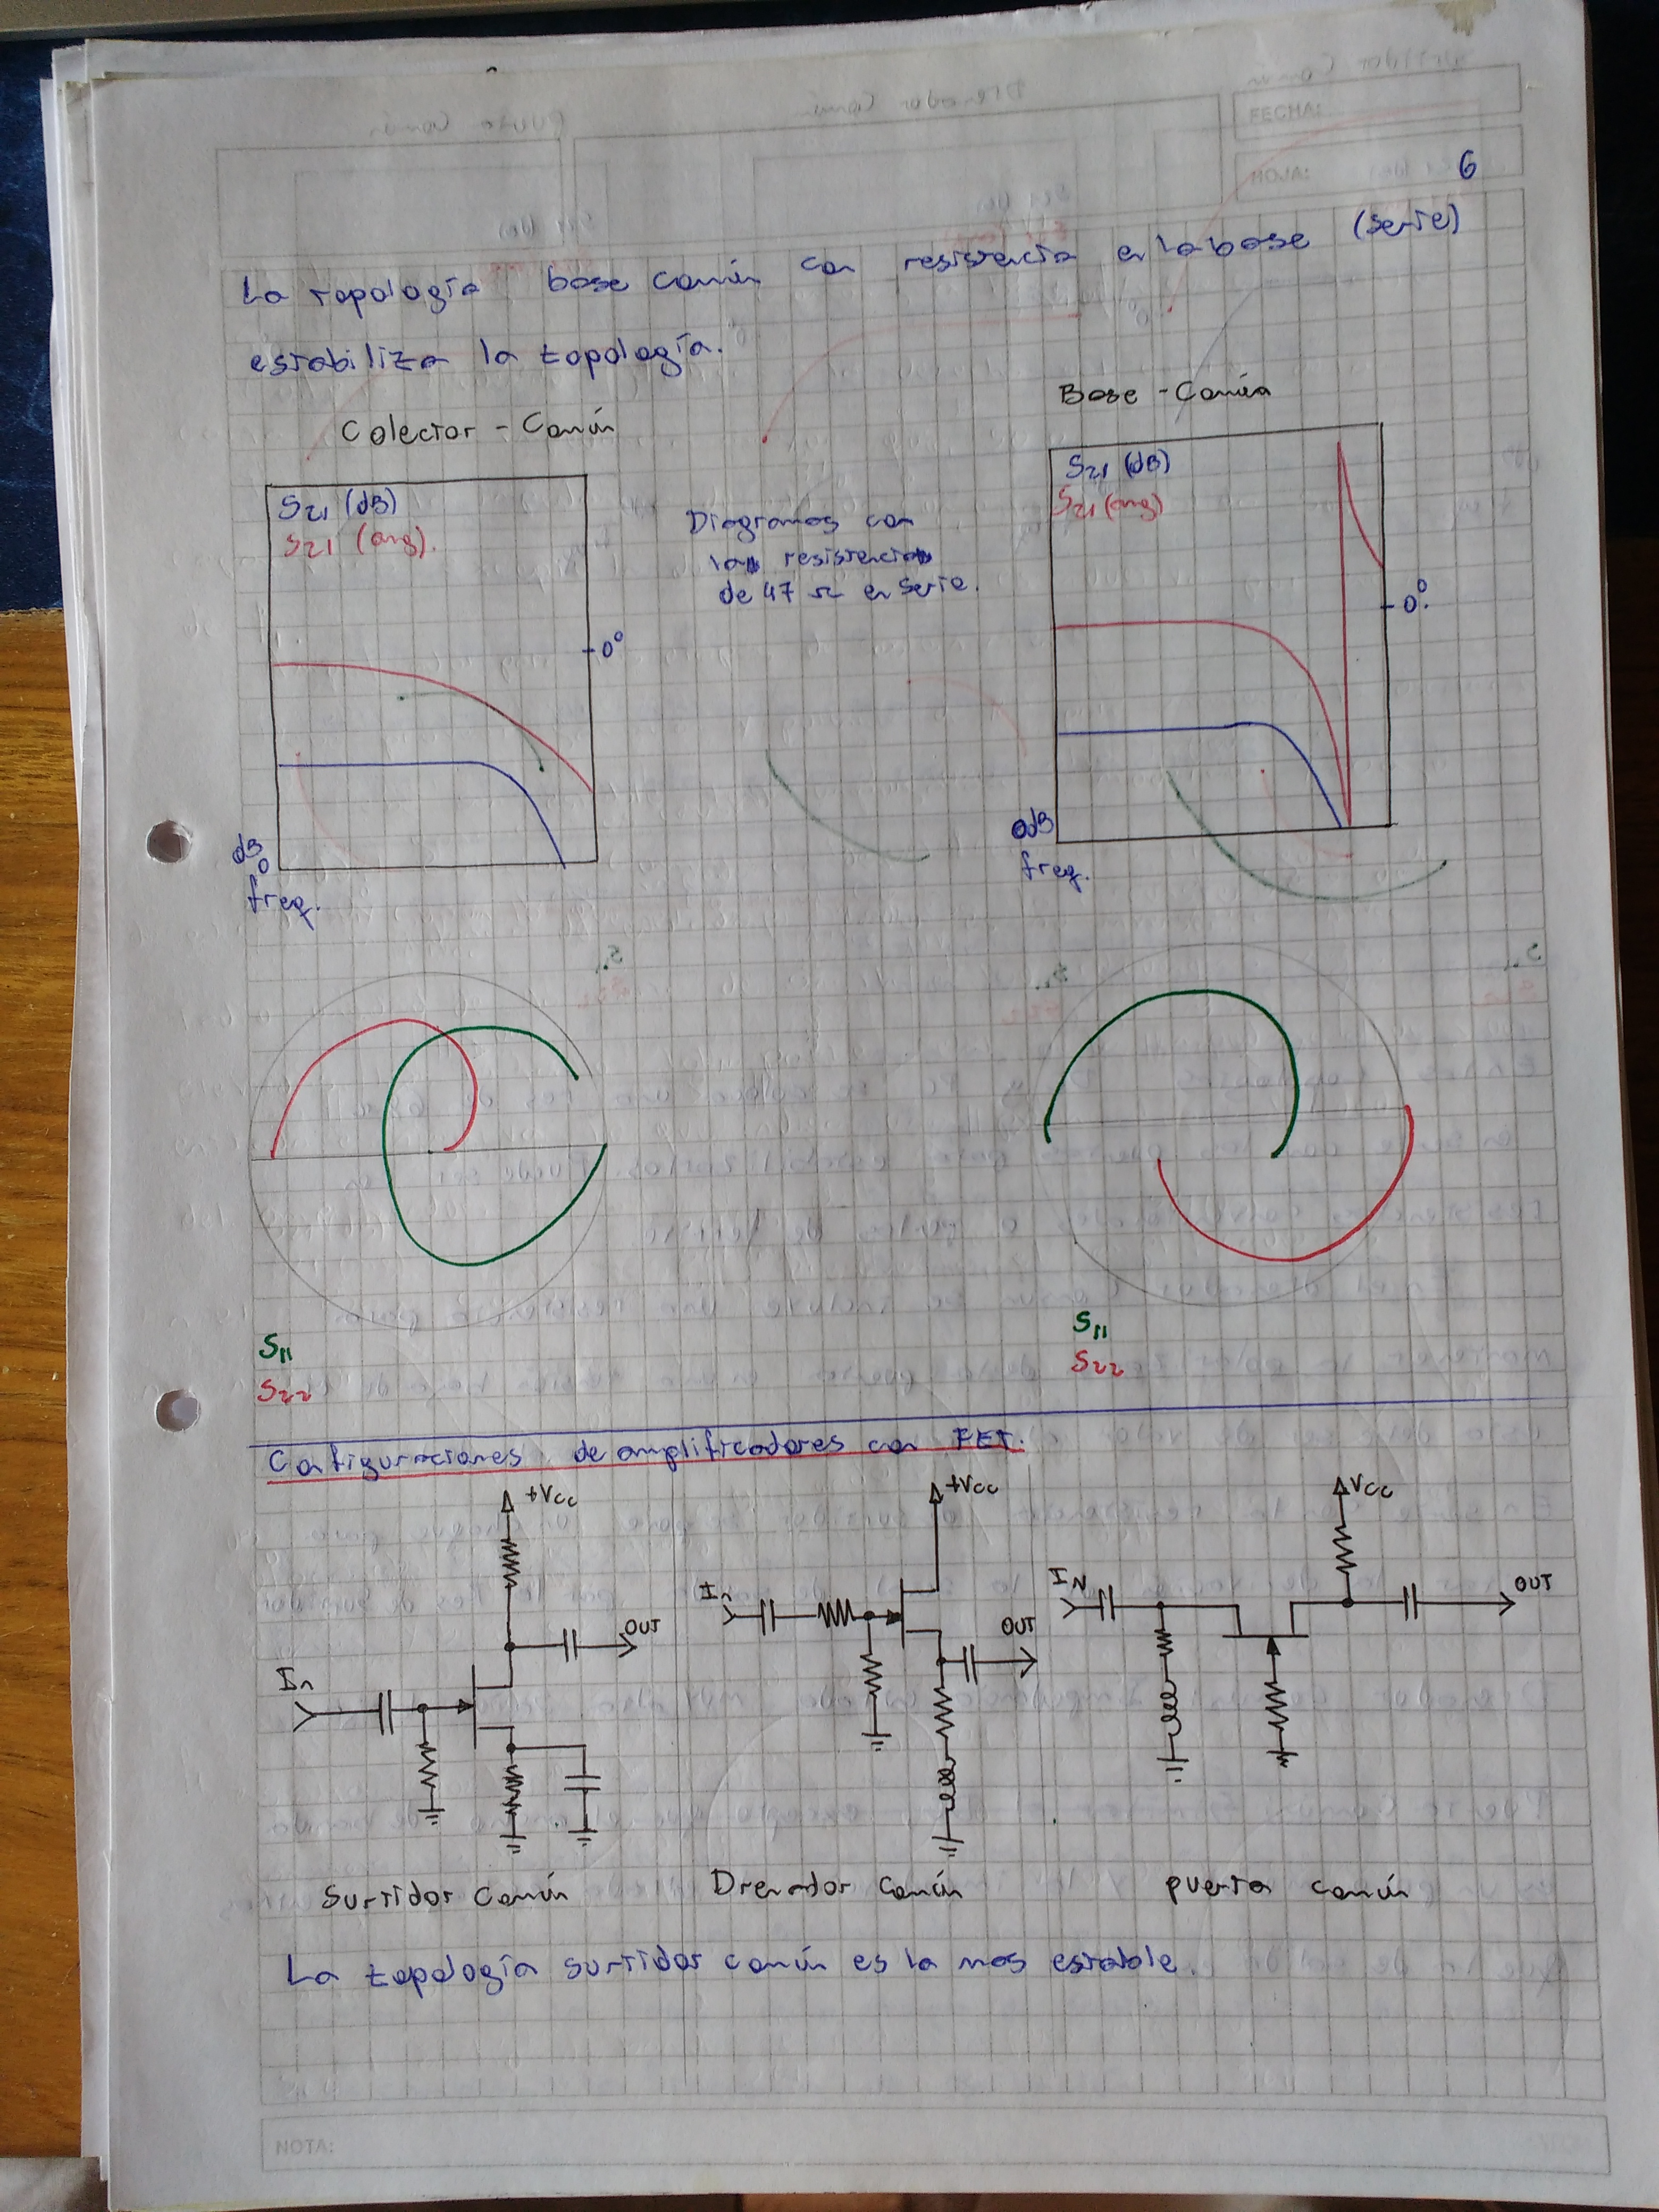 FECHA:
HOJA: 6
La topología base común con resistencia en la base (serie)
estabiliza la topología.
Colector - Común
Base - Común
S21 (dB)
S21 (ang).
0°
dB
0
freq.
Diagramas con
la resistencia
de 47 Ω en serie.
S21 (dB)
S21 (ang)
0°
0dB
freq.
S11
S22
S11
S22
Configuraciones de amplificadores con FET.
+Vcc
In
OUT
Surtidor Común
+Vcc
In
OUT
Drenador Común
Vcc
IN
OUT
puerta común
La topología surtidor común es la mas estable.
NOTA: